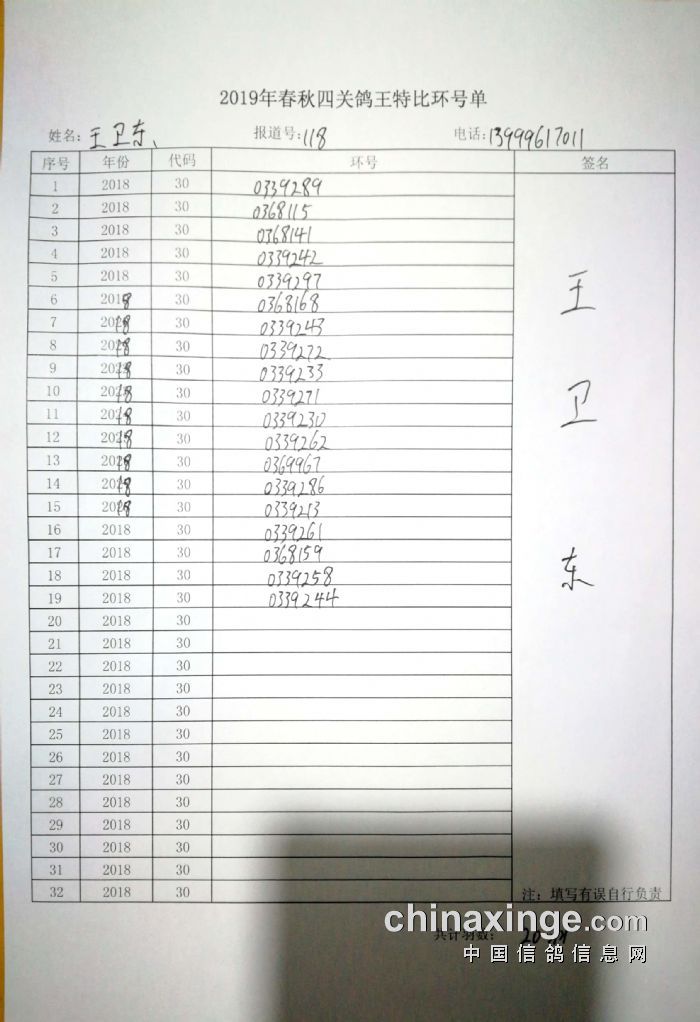 2019年春秋四关鸽王特比环号单
姓名: 王卫东、 报道号: 118 电话: 13999617011
序号 年份 代码 环号 签名
1 2018 30 0339289
2 2018 30 0368115
3 2018 30 0368141
4 2018 30 0339242
5 2018 30 0339297
6 2018 30 0368168
7 2018 30 0339243
8 2018 30 0339272
9 2018 30 0339233
10 2018 30 0339271
11 2018 30 0339230
12 2018 30 0339262
13 2018 30 0369967
14 2018 30 0339286
15 2018 30 0339213
16 2018 30 0339261
17 2018 30 0368159
18 2018 30 0339258
19 2018 30 0339244
20 2018 30
21 2018 30
22 2018 30
23 2018 30
24 2018 30
25 2018 30
26 2018 30
27 2018 30
28 2018 30
29 2018 30
30 2018 30
31 2018 30
32 2018 30
王
卫
东
注: 填写有误自行负责
共计羽数:
chinaxinge.com
中国信鸽信息网